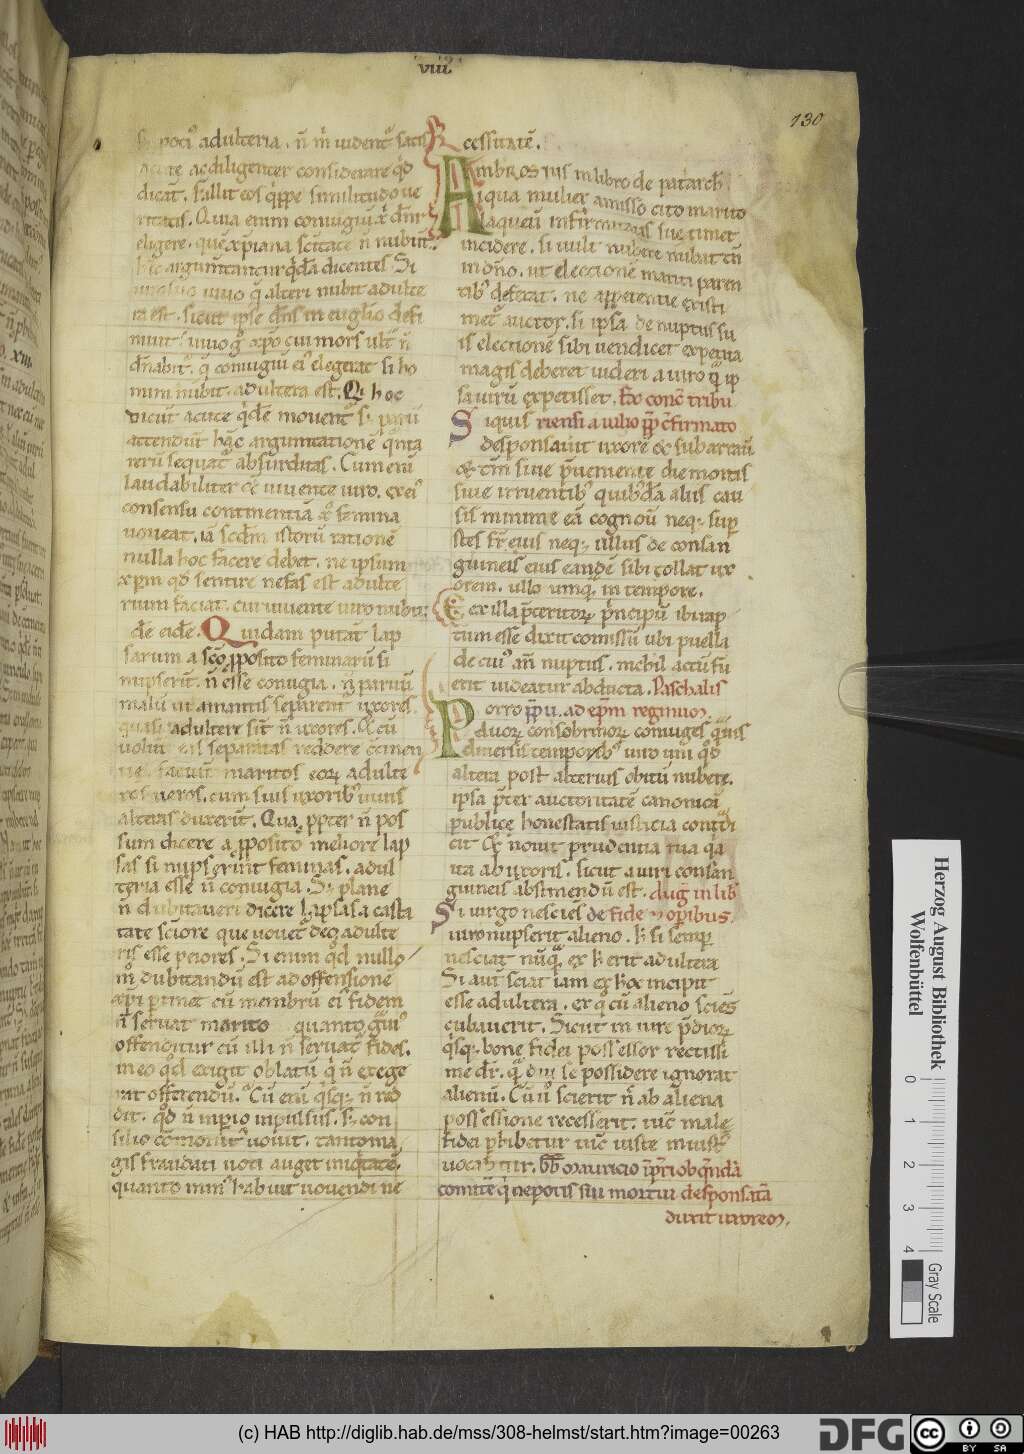 viii.
130
adulteria. n̄ m̄ uident᷑ satis
acute ac diligenter considerare qd̄
dicat̄. fallit eos q̄ppe similitudo ue
ritatis. Quia enim coniugiū
eligere. que xp̄iana scītate n̄ nubūt.
hic argum̄tantur qd̄ā dicentes. Si
uiro suo uiuo q̄ alteri nubit adulte
ra est. sicut ipse dn̄s in euḡlio defi
niuit. uiuo xp̄o cui mors ult᷑ n̄
dn̄abit᷑. q̄ coniugiū ei᷑ elegerat si ho
mini nubit. adultera est. Qi hoc
dicūt acute qd̄e mouent᷑ s; parū
attendūt hāc argum̄tationē q̄nta
rerū sequat᷑ absurditas. Cum eni
laudabiliter & uiuente uiro. ex ei᷑
consensu continentiā femina
uoueat. iā scd̄m istorū rationē
nulla hoc facere debet. ne ipsum
xp̄m qd̄ sentire nefas est adulte
rium faciat. cui uiuente uiro nubit;
de eidē. Quidam putat̄ lap
sarum a sc̄o pposito feminarū si
nupserīt. n̄ esse coniugia. n̄ paruū
malū ut a maritis separent᷑ uxores.
quasi adultere sīt n̄ uxores. & cū
uolūt eas separatas reddere continen
tie. faciūt maritos eorꝝ adulte
ros ueros. cum suis uxorib᷑ uiuis
alteras duxerīt. Qua ppter n̄ pos
sum dicere a pposito meliore lap
sas si nupserint feminas. adul
teria esse n̄ coniugia. S; plane
n̄ dubitauerī dicere lapsas a casta
tate sc̄iore que uouet᷑ deo adulte
riis esse peiores. Si enim qd̄ nullo
m̄ dubitandū est ad offensionē
xp̄i p̄tinet cū membrū ei᷑ fidem
n̄ seruat marito quanto gui᷑
offenditur cū illi n̄ seruat᷑ fides.
in eo qd̄ exigit oblatū q̄ n̄ exege
rat offerendū. Cū eni q̄sq; n̄ red
dit. qd̄ n̄ inpio inpulsus. s; con
silio com̄onit᷑ uouit. tanto ma
gis fraudati uoti auget iniq̄tatē.
quanto min᷑ habuit uouendi ne
cessitatē.
Ambrosius in libro de patarch
Aliqua mulier amisso cito marito
laqueū infirmitatis sue timet
incidere. si uult nubere nubat tn̄
in dn̄o. ut electionē mariti paren
tib᷑ deferat. ne appetentie existi
met᷑ auctor. si ipsa de nuptus su
is electionē sibi uendicet expetita
magis deberet uideri a uiro q̄ ip
sa uirū expetisset. Ex conc̄ tribu
Siquis riensi a iulio pp̄ cf̄irmato
desponsauūt uxorē & subarrau
& tm̄ siue p̄uemente die mortis
siue irruentib᷑ quibd̄ā aliis cau
sis minime eā cognou neq; sup
stes fr̄ eius neq; ullus de consan
guineis eius eandē sibi tollat ux
orem. ullo umq̄ in tempore.
Et ex illa p̄teritorꝝ p̄ncipū ibi rap
tum esse dixit com̄issū ubi puella
de cui᷑ an̄ nuptus. nichil actū fu
erit uideatur abducta. Paschalis
Porro ppu. ad epm reginuꝫ.
duorꝝ consobrinorꝝ coniuges q̄uis
diuersis temporib᷑ uiro uni qd̄
altera post alterius obitū nubere.
ipsa p̄ter auctoritatē canonicā
publice honestatis iusticia contdi
cit & nouit prudentia tua qa
ita ab uxoris. sicut a uiri consan
guineis abstinendū est. Aug in lib
Si uirgo nesciēs de fide ⁊ opibus.
uiro nupserit alieno. h si semp
nesciat nūq̄ ex h erit adultera
Si aut̄ sciat iam ex hoc incipit
esse adultera. ex q̄ cū alieno sciēs
cubauerit. Sicut in iure p̄diorꝝ
q̄sq; bone fidei possessor rectissi
me dr̄. q̄ diu se possidere ignorat
alienū. Cū u᷑ scierit n̄ ab aliena
possessione recesserit. tūc male
fidei phibetur tūc iuste iniust᷑
uocabitur. mauricio
comitē q̄ nepotis sui mortui desponsatā
duxit uxoreꝫ.
Herzog August Bibliothek
Wolfenbüttel
0 1 2 3 4
Gray Scale
(c) HAB http://diglib.hab.de/mss/308-helmst/start.htm?image=00263
DFG
cc
BY SA